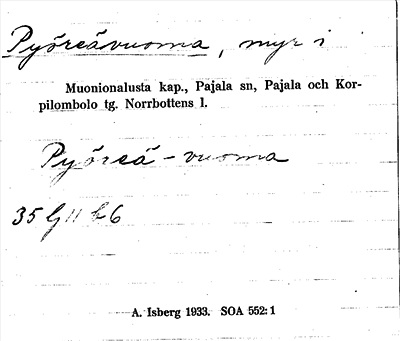 Pyöreävuoma, myr i
Muonionalusta kap., Pajala sn, Pajala och Kor-
pilombolo tg. Norrbottens l.
Pyöreä-vuoma
35 G 11 b 6
A. Isberg 1933. SOA 552: 1